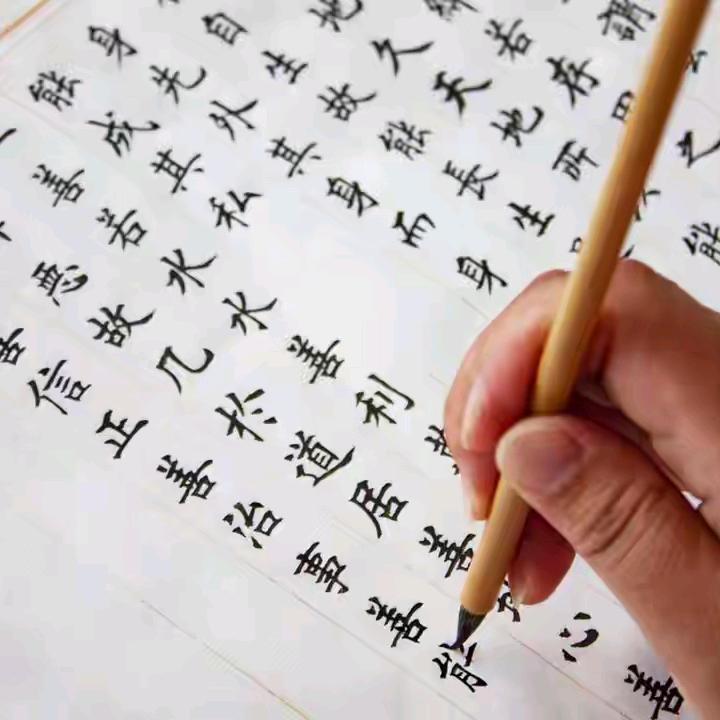 謂
若存用之
地久天地所以能
自生故能長生
身先外其身而身
能成其私
善若水水善利
惡故几於道居善地心善
善信正善治事善能